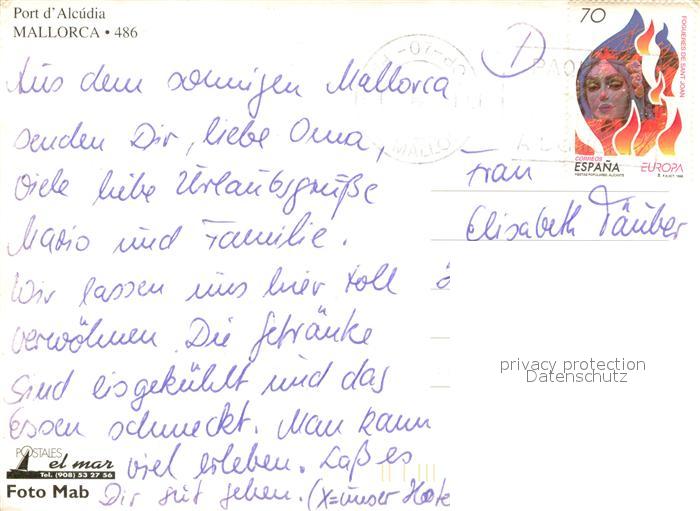 Port d'Alcúdia
MALLORCA • 486
Aus dem sonnigen Mallorca
senden Dir, liebe Oma,
viele liebe Urlaubsgrüße
Mario und Familie.
Wir lassen uns hier toll
verwöhnen. Die Getränke
sind eisgekühlt und das
Essen schmeckt. Man kann
viel erleben. Laß es
Dir gut gehen. (X=unser Hote
POSTALES
el mar
Tel. (908) 53 27 56
Foto Mab
70
FOGUERES DE SANT JOAN
CORREOS
ESPAÑA
EUROPA
FIESTAS POPULARES. ALICANTE
MALLO
Frau
Elisabeth Täuber
privacy protection
Datenschutz